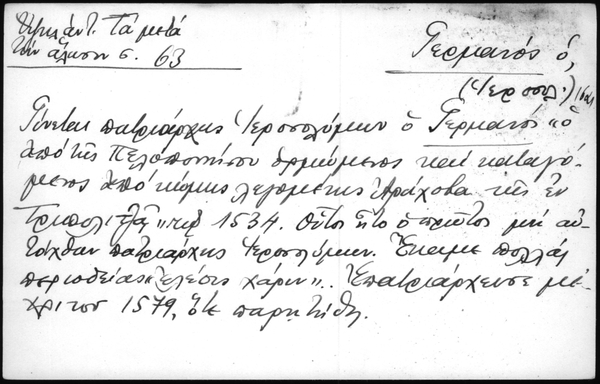 Ὑψηλάντ. Τὰ μετὰ
τὴν ἅλωσιν σ. 63
Γερμανὸς ὁ,
(Ἱεροσολ.)
Γίνεται πατριάρχης Ἱεροσολύμων ὁ Γερμανὸς "ὁ
ἀπὸ τῆς Πελοποννήσου ὁρμώμενος καὶ καταγό-
μενος ἀπὸ κώμης λεγομένης Ἀράχοβα τῆς ἐν
1534. Οὗτος ἦτο ὁ πρῶτος μὴ αὐ-
τόχθων πατριάρχης Ἱεροσολύμων. Ἔκαμε πολλὰς
περιοδείας "ἐλέους χάριν".. Ἐπατριάρχευσε μέ-
χρι του 1579, ὅτε παρῃτήθη.